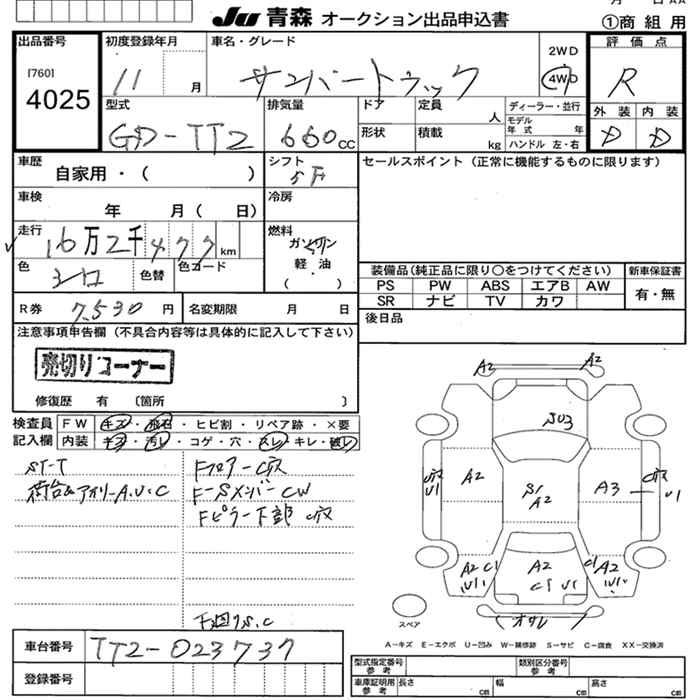 JU 青森 オークション出品申込書
①商組用
出品番号
[760]
4025
初度登録年月
11 月
車名・グレード
サンバートラック
2WD
4WD
評価点
R
外装 内装
D D
型式
GD-TT2
排気量
660 CC
ドア
定員
人
形状
積載
kg
ディーラー・並行
モデル年式 年
ハンドル 左・右
車歴
自家用・( )
シフト
5F
セールスポイント(正常に機能するものに限ります)
車検
年 月( 日)
冷房
走行
16万2千477 km
燃料
ガソリン
軽・油
( )
色
シロ
色替
色コード
装備品(純正品に限り○をつけてください)
新車保証書
PS PW ABS エアB AW
SR ナビ TV カワ
有・無
R券 7,530 円
名変期限 月 日
後日品
注意事項申告欄(不具合内容等は具体的に記入して下さい)
売切りコーナー
修復歴 有 (箇所 )
検査員記入欄
FW キズ・飛石・ヒビ割・リペア跡・×要
内装 キズ・汚レ・コゲ・穴・スレ・キレ・破レ
ST-T
荷台&アオリ-A.U.C
Fフロアー C
F-Sメンバー CW
Fピラー下部
下廻りS.C
A2 A2
S03
A2
S1
A2
A3
U1
U1
A2 C1
U1
A2
C1 U1
C1 A2
U1
オサレ
スペア
A-キズ E-エクボ U-凹み W-補修跡 S-サビ C-腐食 XX-交換済
車台番号
TT2-023737
登録番号
型式指定番号 参考
類別区分番号 参考
車庫証明用 参考
長さ cm
幅 cm
高さ cm